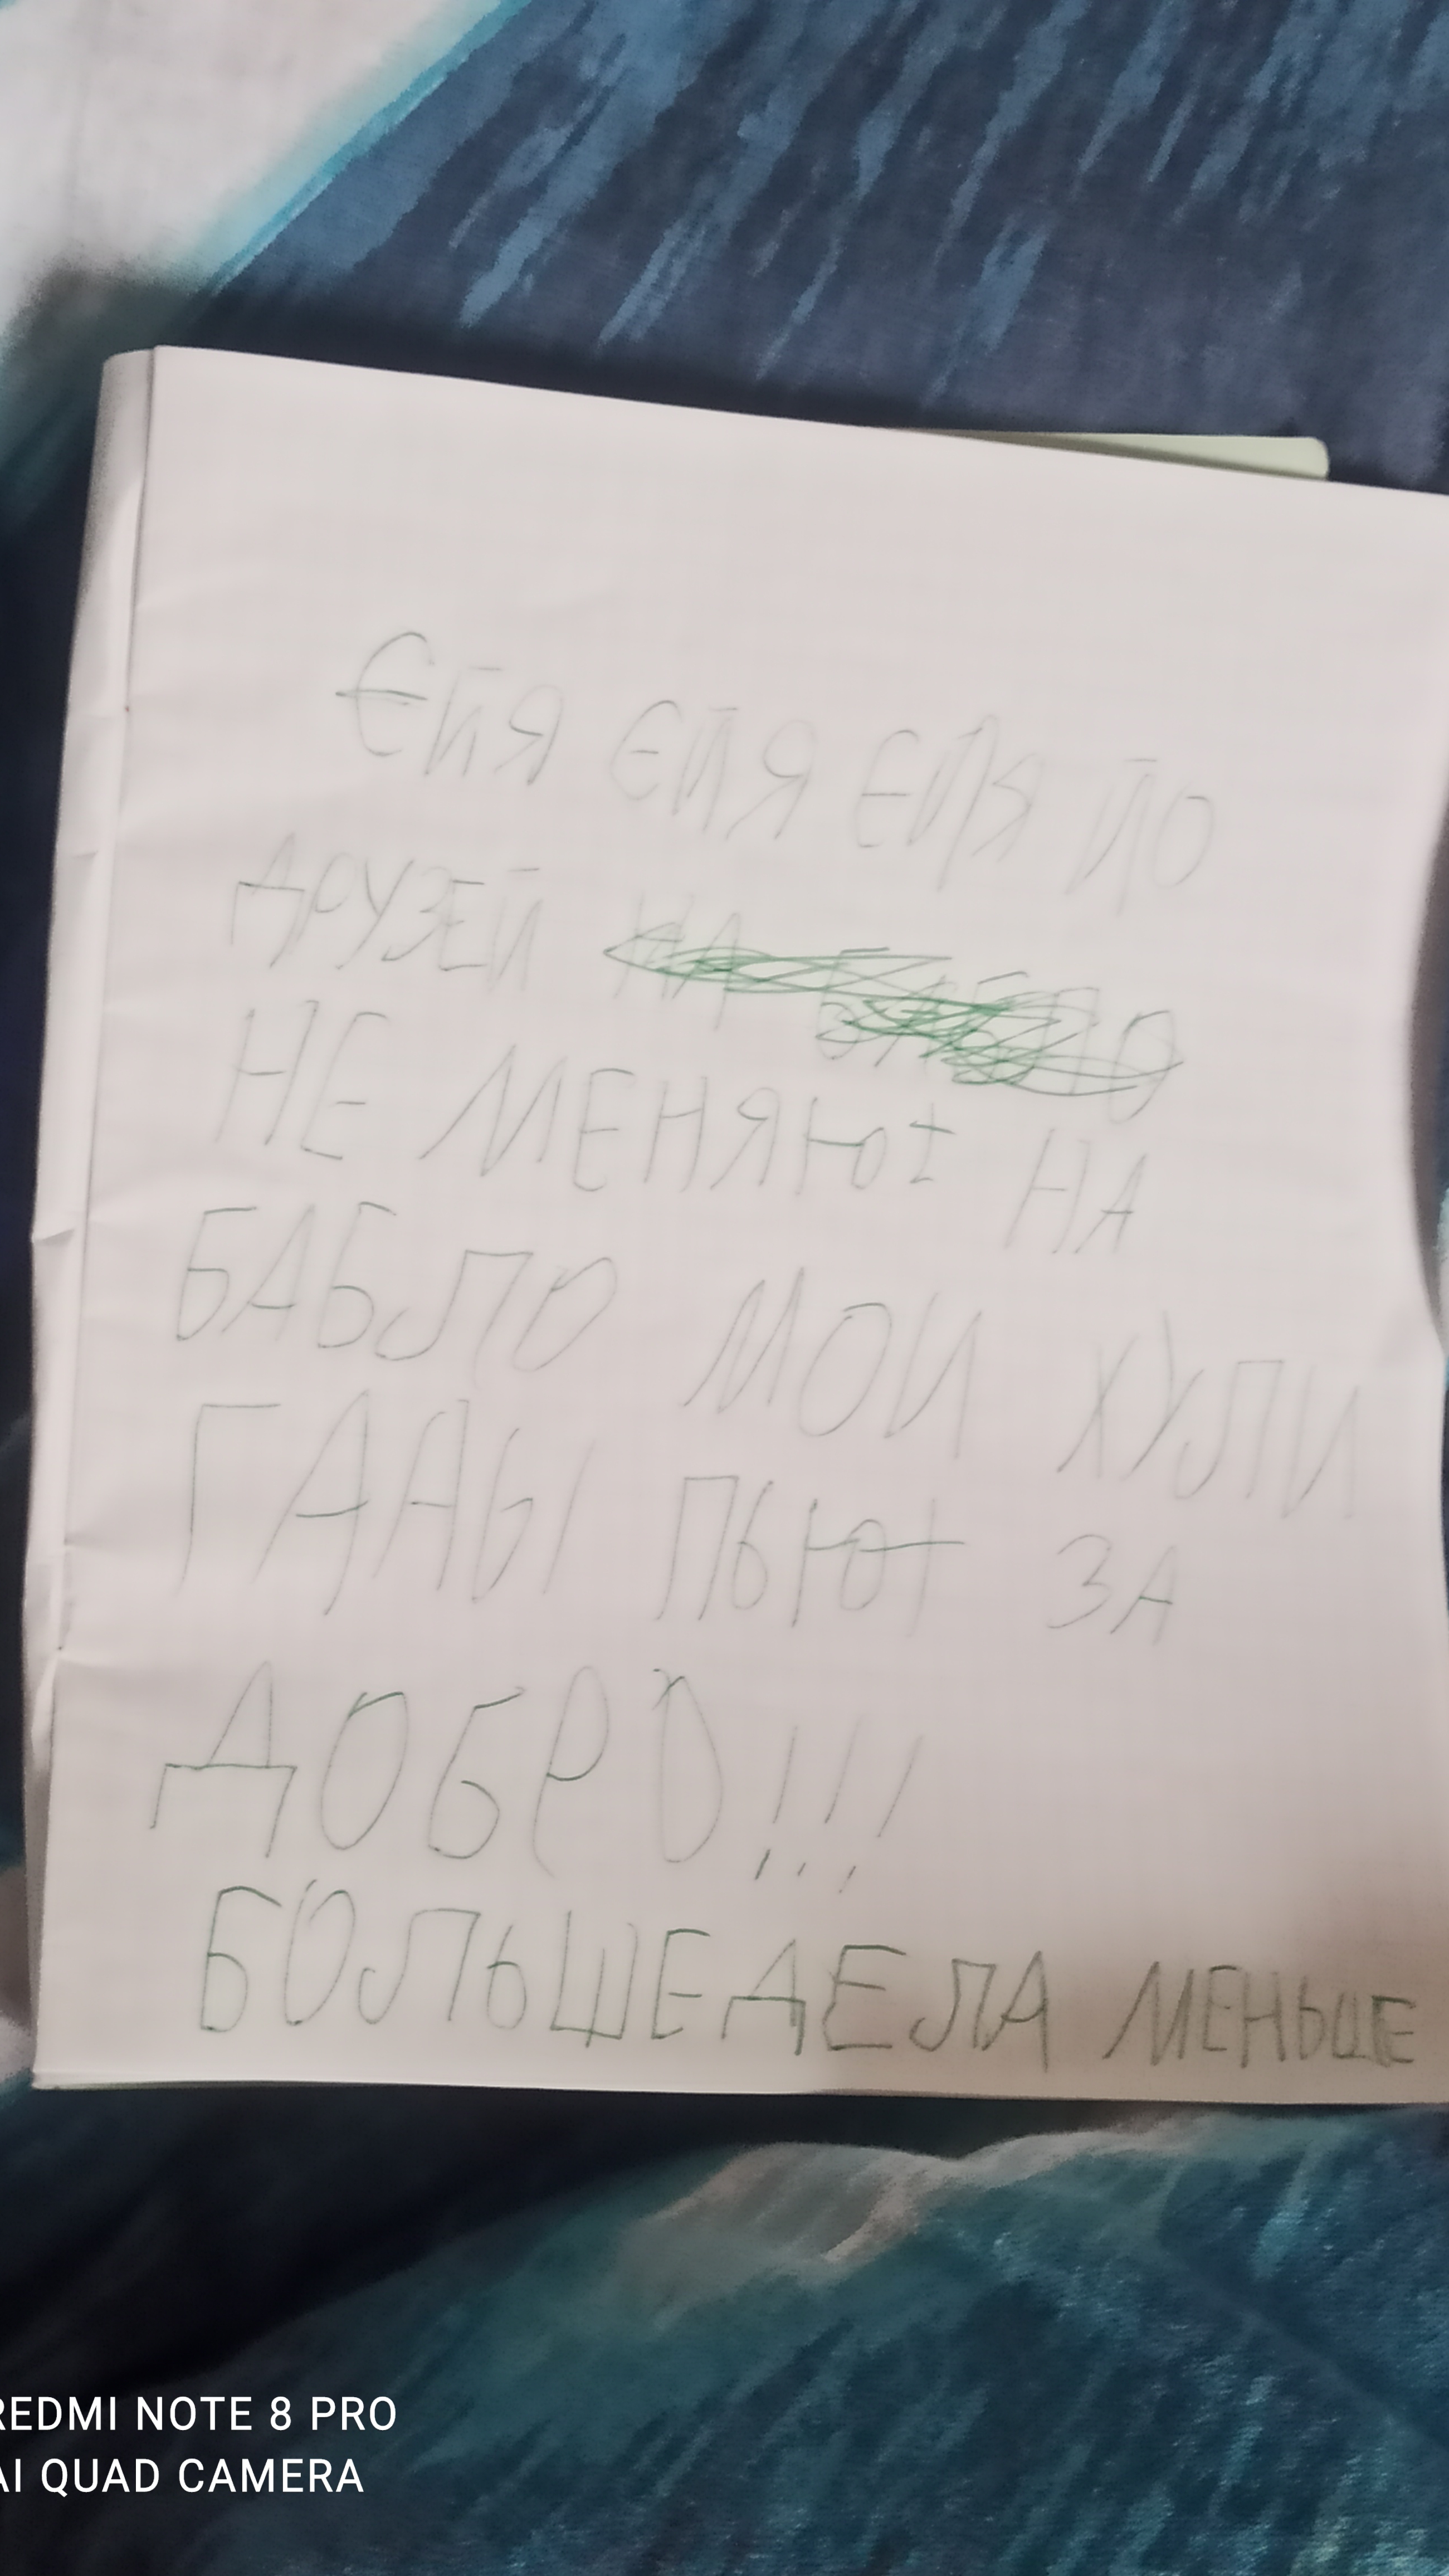 ЄЙЯ ЄЙЯ ЄЙЯ ЙО
ДРУЗЕЙ НА БАБЛО
НЕ МЕНЯЮТ НА
БАБЛО МОИ ХУЛИ
ГАНЫ ПЬЮТ ЗА
ДОБРО!!!
БОЛЬШЕ ДЕЛА МЕНЬШЕ
REDMI NOTE 8 PRO
AI QUAD CAMERA